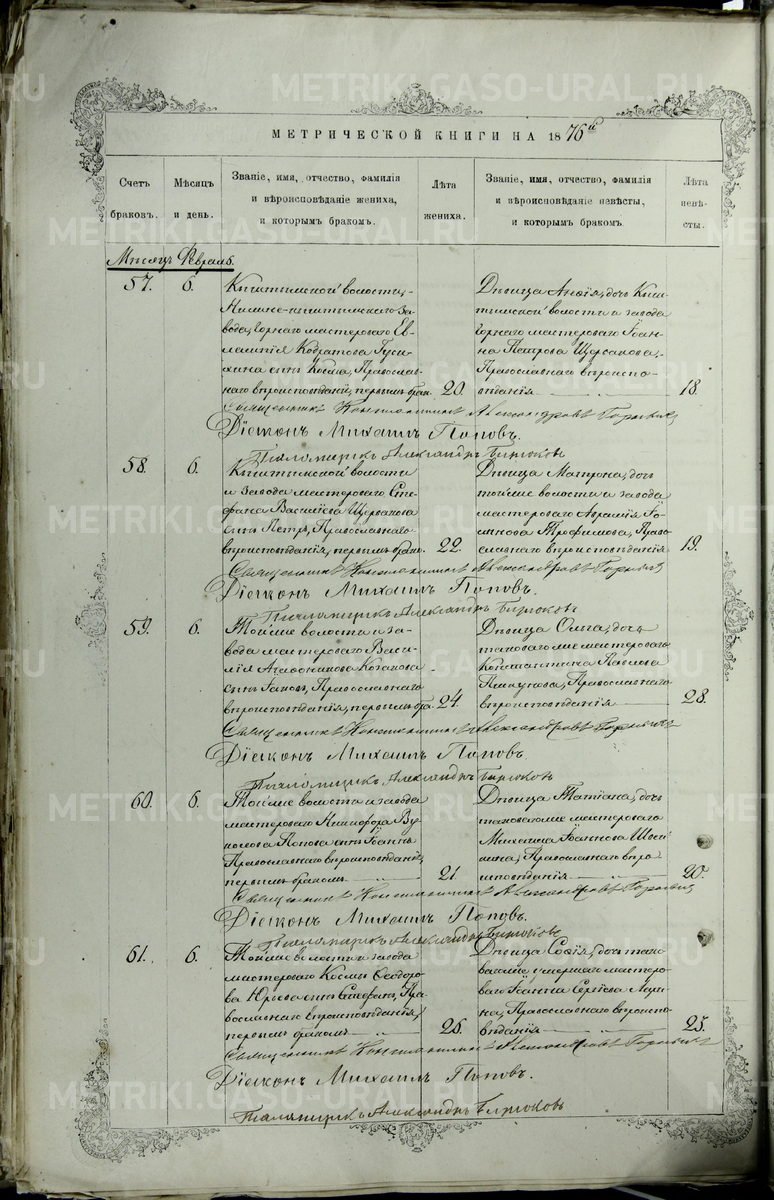 МЕТРИЧЕСКОЙ КНИГИ НА 1876й
Счетъ браковъ.
Мѣсяцъ и день.
Званіе, имя, отчество, фамилія
и вѣроисповѣданіе жениха,
и которымъ бракомъ.
Лѣта жениха.
Званіе, имя, отчество, фамилія
и вѣроисповѣданіе невѣсты,
и которымъ бракомъ.
Лѣта невѣсты.
Мѣсяцъ Февраль.
57. 6.
Кыштымской волости,
завода, Горнаго мастероваго
сынъ Косма, Православнаго вѣроисповѣданія, первымъ
20.
Дѣвица дочь Кыштымской волости и завода
Горнаго мастероваго Іоанна Петрова Щербакова,
Православнаго вѣроисповѣданія
18.
Священникъ Константинъ Александровъ
Діаконъ Михаилъ Поповъ.
Псаломщикъ Александръ Бирюковъ
58. 6.
Кыштымской волости
и завода мастероваго Стефана
Васильева Щербакова
сынъ Петръ, Православнаго
вѣроисповѣданія, первымъ
22.
Дѣвица Матрона, дочь
тойже волости и завода
мастероваго
Трофимова, Православнаго
вѣроисповѣданія
19.
Священникъ Константинъ Александровъ
Діаконъ Михаилъ Поповъ.
Псаломщикъ Александръ Бирюковъ
59. 6.
Тойже волости и завода
мастероваго Василія
сынъ Православнаго
вѣроисповѣданія, первымъ
24.
Дѣвица Ольга, дочь
таковагоже мастероваго
Константина Павлова
Православнаго
вѣроисповѣданія
28.
Священникъ Константинъ Александровъ
Діаконъ Михаилъ Поповъ
Псаломщикъ Александръ Бирюковъ
60. 6.
Тойже волости и завода
мастероваго Никифора
Попова сынъ Іоаннъ
Православнаго вѣроисповѣданія,
первымъ бракомъ
21.
Дѣвица Татіана, дочь
таковагоже мастероваго
Михаила Іоаннова
Православнаго
вѣроисповѣданія
20.
Священникъ Константинъ Александровъ
Діаконъ Михаилъ Поповъ.
Псаломщикъ Александръ Бирюковъ
61. 6.
Тойже волости и завода
мастероваго Космы Ѳеодорова
Юрьева сынъ Стефанъ,
Православнаго вѣроисповѣданія,
первымъ бракомъ
26.
Дѣвица Софія, дочь
мастероваго Іоанна Сергѣева
Православнаго вѣроисповѣданія
25.
Священникъ Константинъ Александровъ
Діаконъ Михаилъ Поповъ.
Псаломщикъ Александръ Бирюковъ
METRIKI.GASO-URAL.RU